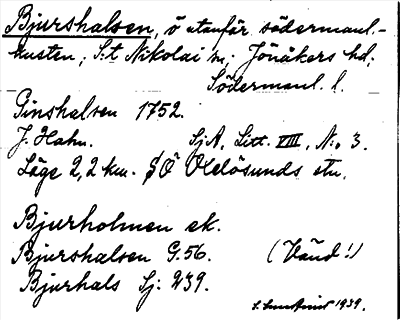 Bjurshalsen, ö utanför södermanl.-
kusten; S:t Nikolai sn; Jönåkers hd;
Södermanl. l.
Ginshalsen 1752.
J. Hahn. SjA, Litt. VIII, N:o 3.
Läge 2,2 km. SÖ Oxelösunds stn.
Bjurholmen ek.
Bjurshalsen G.56. (Vänd!)
Bjurhals Sj: 239.
1939.